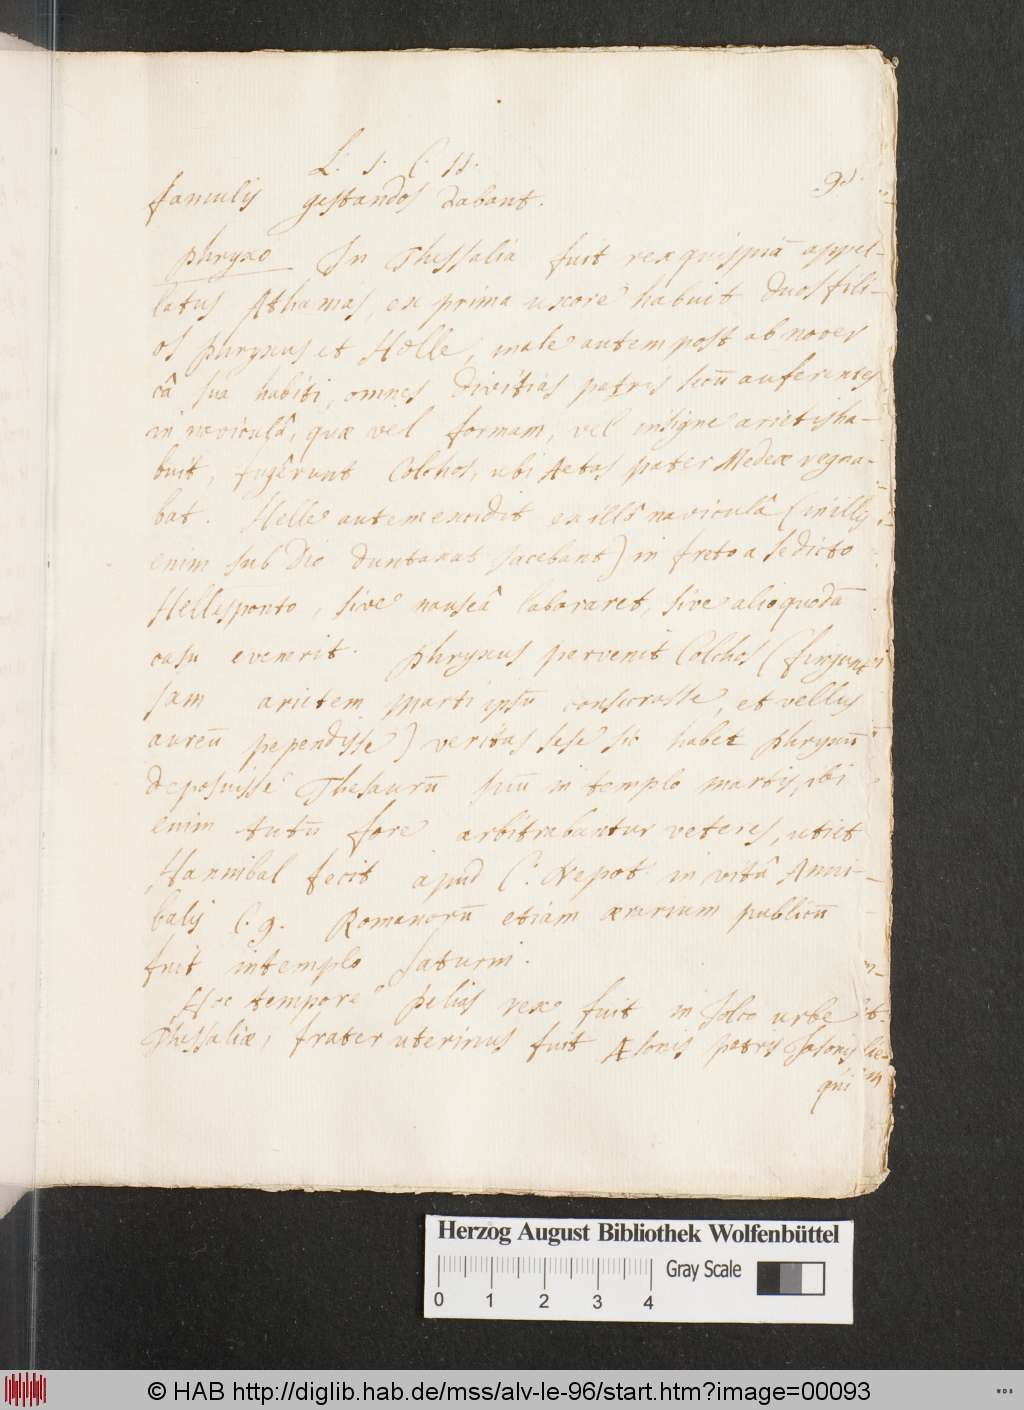 L. 5. C. 11.
91.
famulis gestandos dabant.
Phryxo In Thessalia fuit rex quispiã appel-
latus Athamas, ex prima uxore habuit duos fili-
os Phryxus et Helle, male autem post ab nover
câ sua habiti, omnes divitias patris secũ auferentes
in naviculâ, quæ vel formam, vel insigne arietis ha-
buit, fugêrunt Colchos, ubi Aetas pater Medeæ regna-
bat. Helle autem excidit ex illâ naviculâ (in illis
enim sub Dio duntaxat jacebant) in freto a se dicto
Hellesponto, sive nauseâ laboraret, sive alio quodã
casu evenerit. Phryxus pervenit Colchos (fingunt
jam arietem Marti ipsũ consecrasse, et vellus
aureũ pependisse) veritas sese sic habet Phryxũ
deposuisse Thesaurũ suũ in templo martis, ibi
enim tutũ fore arbitrabantur veteres, uti et
Hannibal fecit apud C. Nepot in vitâ Anni-
balis C. 9. Romanorũ etiam ærarium publicũ
fuit in templo Saturni.
Hoc tempore Pelias rex fuit in Jolco urbe
Thessaliæ, frater uterinus fuit Æsonis patris Jasonis
qui
Herzog August Bibliothek Wolfenbüttel
Gray Scale
0 1 2 3 4
© HAB http://diglib.hab.de/mss/alv-le-96/start.htm?image=00093